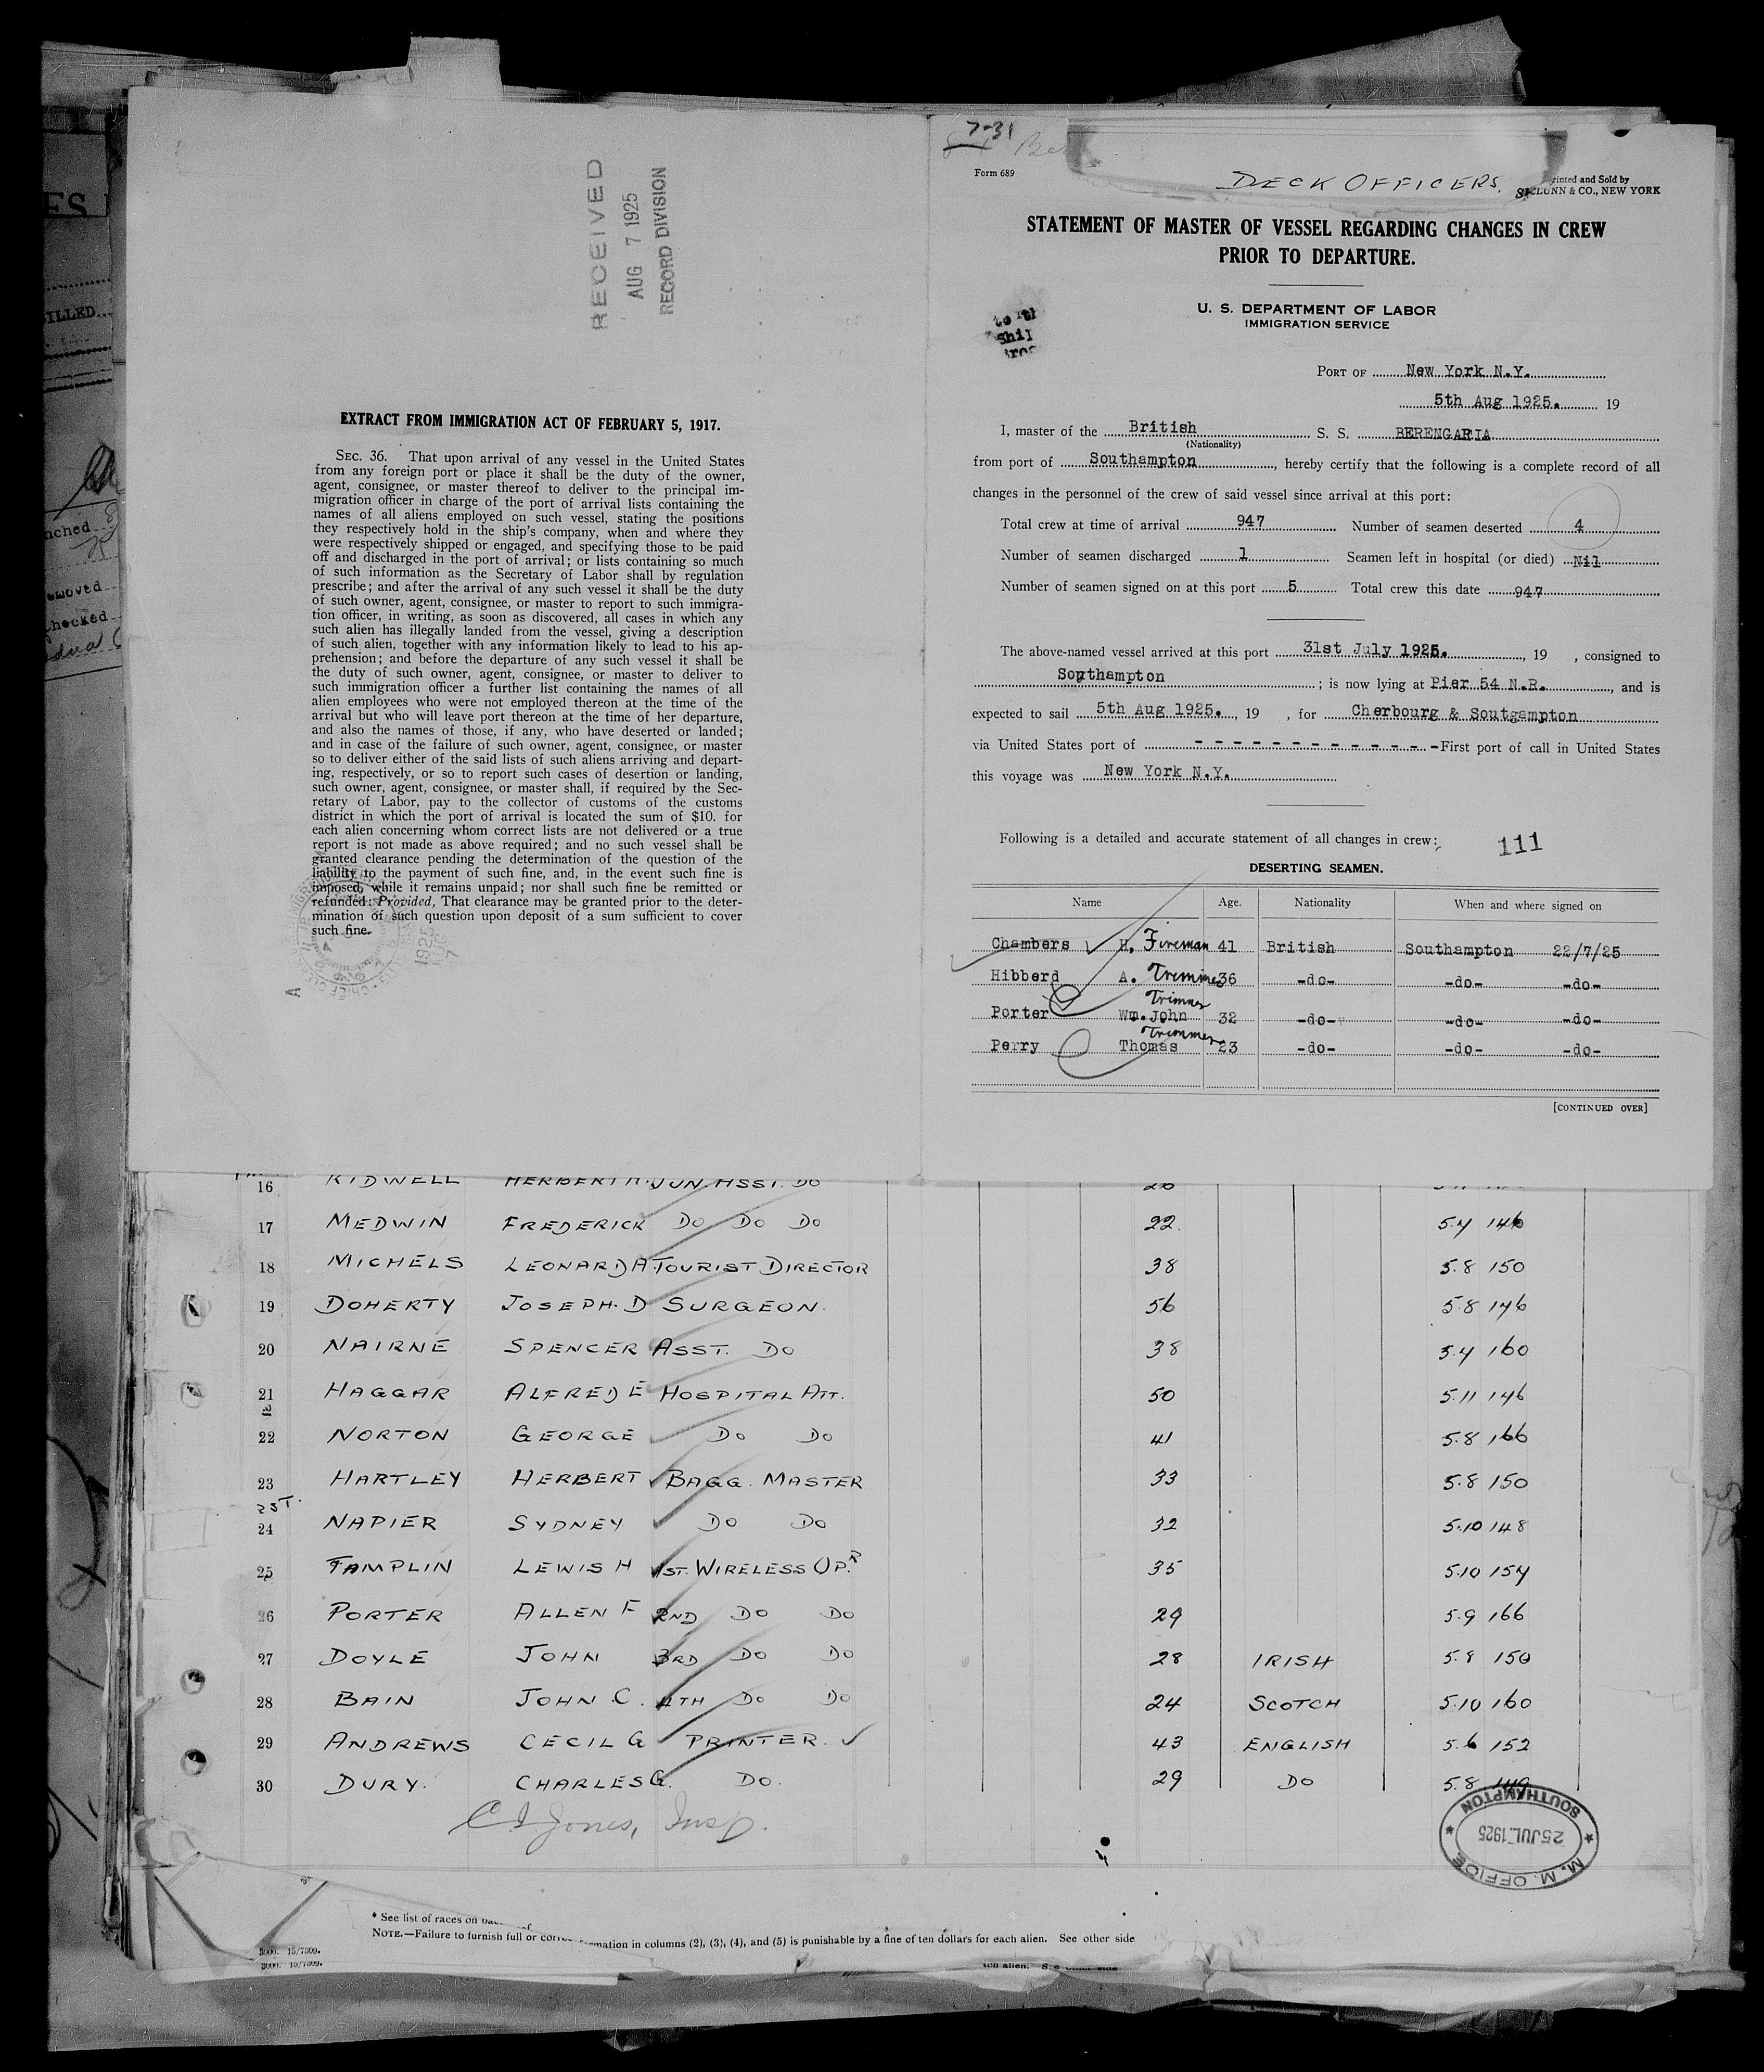 RECEIVED
AUG 7 1925
RECORD DIVISION
EXTRACT FROM IMMIGRATION ACT OF FEBRUARY 5, 1917.
SEC. 36. That upon arrival of any vessel in the United States
from any foreign port or place it shall be the duty of the owner,
agent, consignee, or master thereof to deliver to the principal im-
migration officer in charge of the port of arrival lists containing the
names of all aliens employed on such vessel, stating the positions
they respectively hold in the ship's company, when and where they
were respectively shipped or engaged, and specifying those to be paid
off and discharged in the port of arrival; or lists containing so much
of such information as the Secretary of Labor shall by regulation
prescribe; and after the arrival of any such vessel it shall be the duty
of such owner, agent, consignee, or master to report to such immigra-
tion officer, in writing, as soon as discovered, all cases in which any
such alien has illegally landed from the vessel, giving a description
of such alien, together with any information likely to lead to his ap-
prehension; and before the departure of any such vessel it shall be
the duty of such owner, agent, consignee, or master to deliver to
such immigration officer a further list containing the names of all
alien employees who were not employed thereon at the time of the
arrival but who will leave port thereon at the time of her departure,
and also the names of those, if any, who have deserted or landed;
and in case of the failure of such owner, agent, consignee, or master
so to deliver either of the said lists of such aliens arriving and depart-
ing, respectively, or so to report such cases of desertion or landing,
such owner, agent, consignee, or master shall, if required by the Sec-
retary of Labor, pay to the collector of customs of the customs
district in which the port of arrival is located the sum of $10. for
each alien concerning whom correct lists are not delivered or a true
report is not made as above required; and no such vessel shall be
granted clearance pending the determination of the question of the
liability to the payment of such fine, and, in the event such fine is
imposed, while it remains unpaid; nor shall such fine be remitted or
refunded: Provided, That clearance may be granted prior to the deter-
mination of such question upon deposit of a sum sufficient to cover
such fine.
7-31
Form 689
DECK OFFICERS.
Printed and Sold by
& CO., NEW YORK
STATEMENT OF MASTER OF VESSEL REGARDING CHANGES IN CREW
PRIOR TO DEPARTURE.
U. S. DEPARTMENT OF LABOR
IMMIGRATION SERVICE
PORT OF New York N.Y.
5th Aug 1925. 19
I, master of the British S. S. BERENGARIA
(Nationality)
from port of Southampton, hereby certify that the following is a complete record of all
changes in the personnel of the crew of said vessel since arrival at this port:
Total crew at time of arrival 947 Number of seamen deserted 4
Number of seamen discharged 1 Seamen left in hospital (or died) Nil
Number of seamen signed on at this port 5 Total crew this date 947
The above-named vessel arrived at this port 31st July 1925., 19 , consigned to
Southampton ; is now lying at Pier 54 N.R., and is
expected to sail 5th Aug 1925., 19 , for Cherbourg & Soutgampton
via United States port of - - - - - - - - - - - - - First port of call in United States
this voyage was New York N.Y.
Following is a detailed and accurate statement of all changes in crew:
111
DESERTING SEAMEN.
Name Age. Nationality When and where signed on
Chambers H. Fireman 41 British Southampton 22/7/25
Hibberd A. Trimmer 36 -do- -do- -do-
Porter Wm. John Trimmer 32 -do- -do- -do-
Perry Thomas Trimmer 23 -do- -do- -do-
[CONTINUED OVER]
16 KIDWELL HERBERT H. JUN. ASST. DO 26
17 MEDWIN FREDERICK DO DO DO 22. 5.4 146
18 MICHELS LEONARD A TOURIST DIRECTOR 38 5.8 150
19 DOHERTY JOSEPH. D SURGEON. 56 5.8 146
20 NAIRNE SPENCER ASST. DO 38 5.4 160
21 HAGGAR ALFRED E HOSPITAL ATT. 50 5.11 146
22 NORTON GEORGE DO DO 41 5.8 166
23 HARTLEY HERBERT BAGG. MASTER 33 5.8 150
24 NAPIER SYDNEY DO DO 32 5.10 148
25 TAMPLIN LEWIS H 1ST. WIRELESS OPR. 35 5.10 154
26 PORTER ALLEN F 2ND DO DO 29 5.9 166
27 DOYLE JOHN 3RD DO DO 28 IRISH 5.8 150
28 BAIN JOHN C. 4TH DO DO 24 SCOTCH 5.10 160
29 ANDREWS CECIL G PRINTER. 43 ENGLISH 5.6 152
30 DURY. CHARLES G. DO. 29 DO 5.8 149
C I Jones, Insp.
M. M. OFFICE
25 JUL 1925
SOUTHAMPTON
* See list of races on
NOTE.—Failure to furnish full or mation in columns (2), (3), (4), and (5) is punishable by a fine of ten dollars for each alien. See other side
3000. 15/7309.